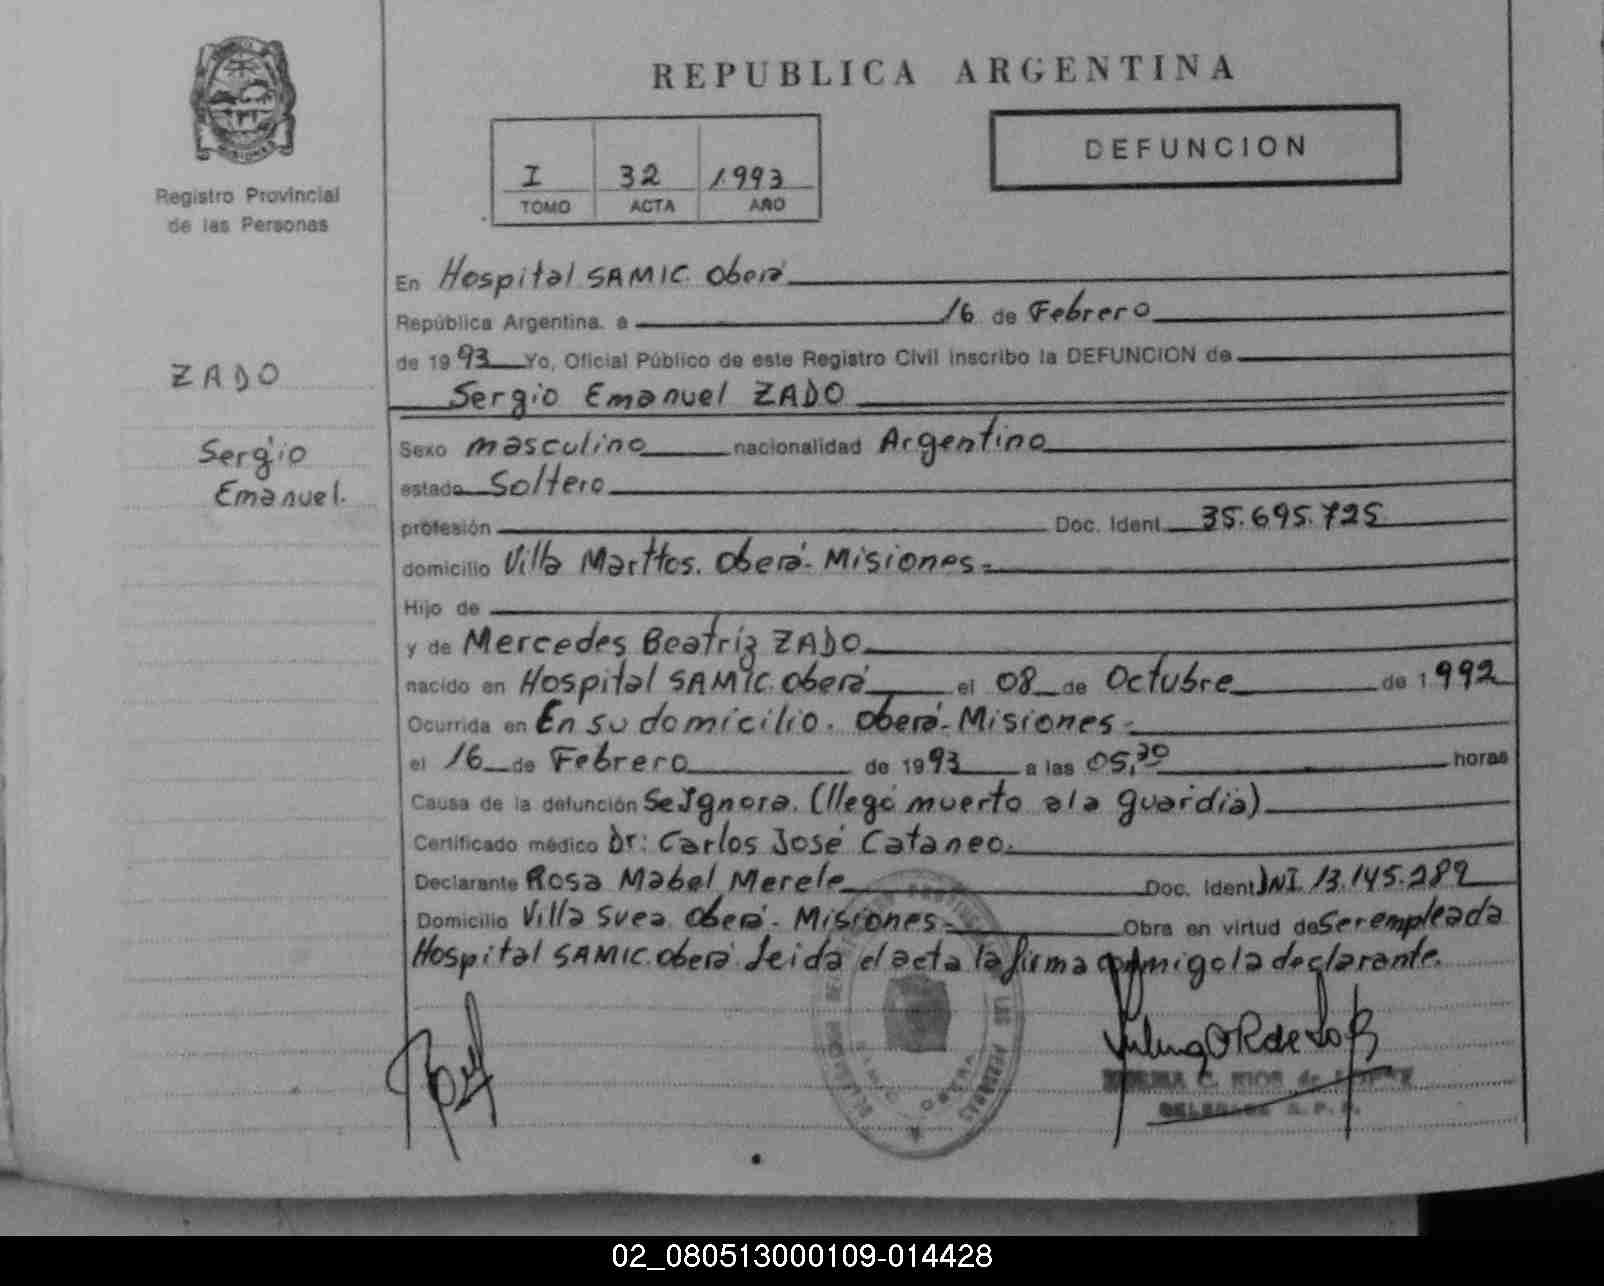 REPUBLICA ARGENTINA
MISIONES
Registro Provincial
de las Personas
I 32 1993
TOMO ACTA AÑO
DEFUNCION
ZADO
Sergio
Emanuel.
En Hospital SAMIC. Oberá
República Argentina, a 16 de Febrero
de 1993 Yo, Oficial Público de este Registro Civil inscribo la DEFUNCION de
Sergio Emanuel ZADO
Sexo masculino nacionalidad Argentino
estado Soltero
profesión Doc. Ident. 35.695.725
domicilio Villa Marttos. Oberá- Misiones=
Hijo de
y de Mercedes Beatriz ZADO
nacido en Hospital SAMIC. Oberá el 08 de Octubre de 1992
Ocurrida en En su domicilio. Oberá- Misiones=
el 16 de Febrero de 1993 a las 05,30 horas
Causa de la defunción Se Ignora. (llegó muerto a la guardia)
Certificado médico Dr: Carlos José Cataneo.
Declarante Rosa Mabel Merele Doc. Ident DNI. 13.145.289
Domicilio Villa Svea. Oberá- Misiones= Obra en virtud de Ser empleada
Hospital SAMIC. Oberá. Leida el acta la firma conmigo la declarante.
C. RIOS de
02_080513000109-014428